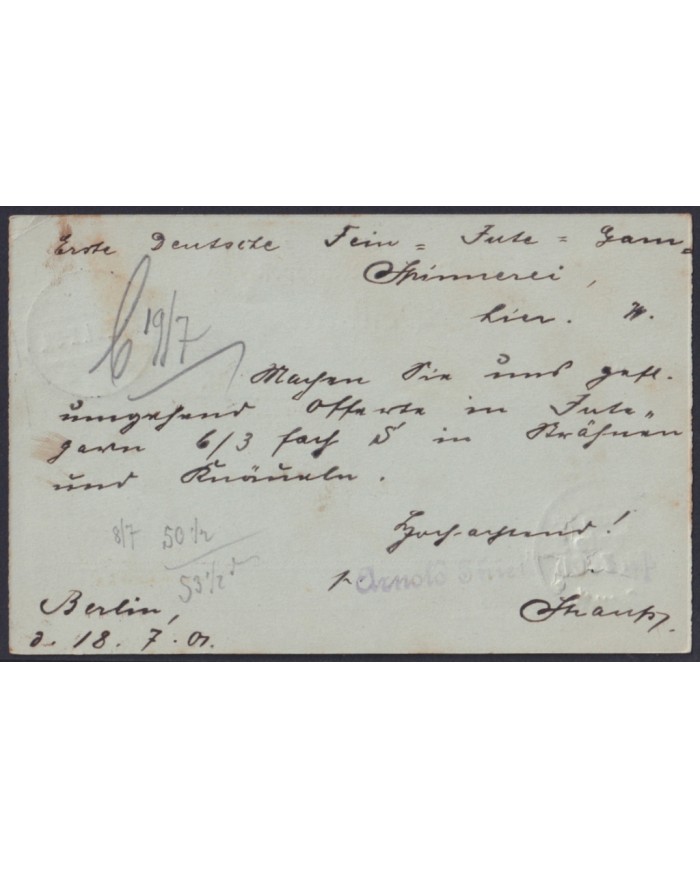 Erste Deutsche Fein = Jute = Garn =
Spinnerei,
hier. W.
b 19/7
Machen Sie uns gefl.
umgehend Offerte in Jute„
garn 6/3 fach S in Strähnen
und Knäueln.
8/7 50 1/2
53 1/2 d
Hochachtend!
p. Arnold
Berlin,
d. 18. 7. 01.